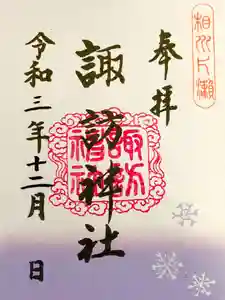 奉拝
相州片瀬
諏訪神社
諏訪神社
令和三年十二月 日